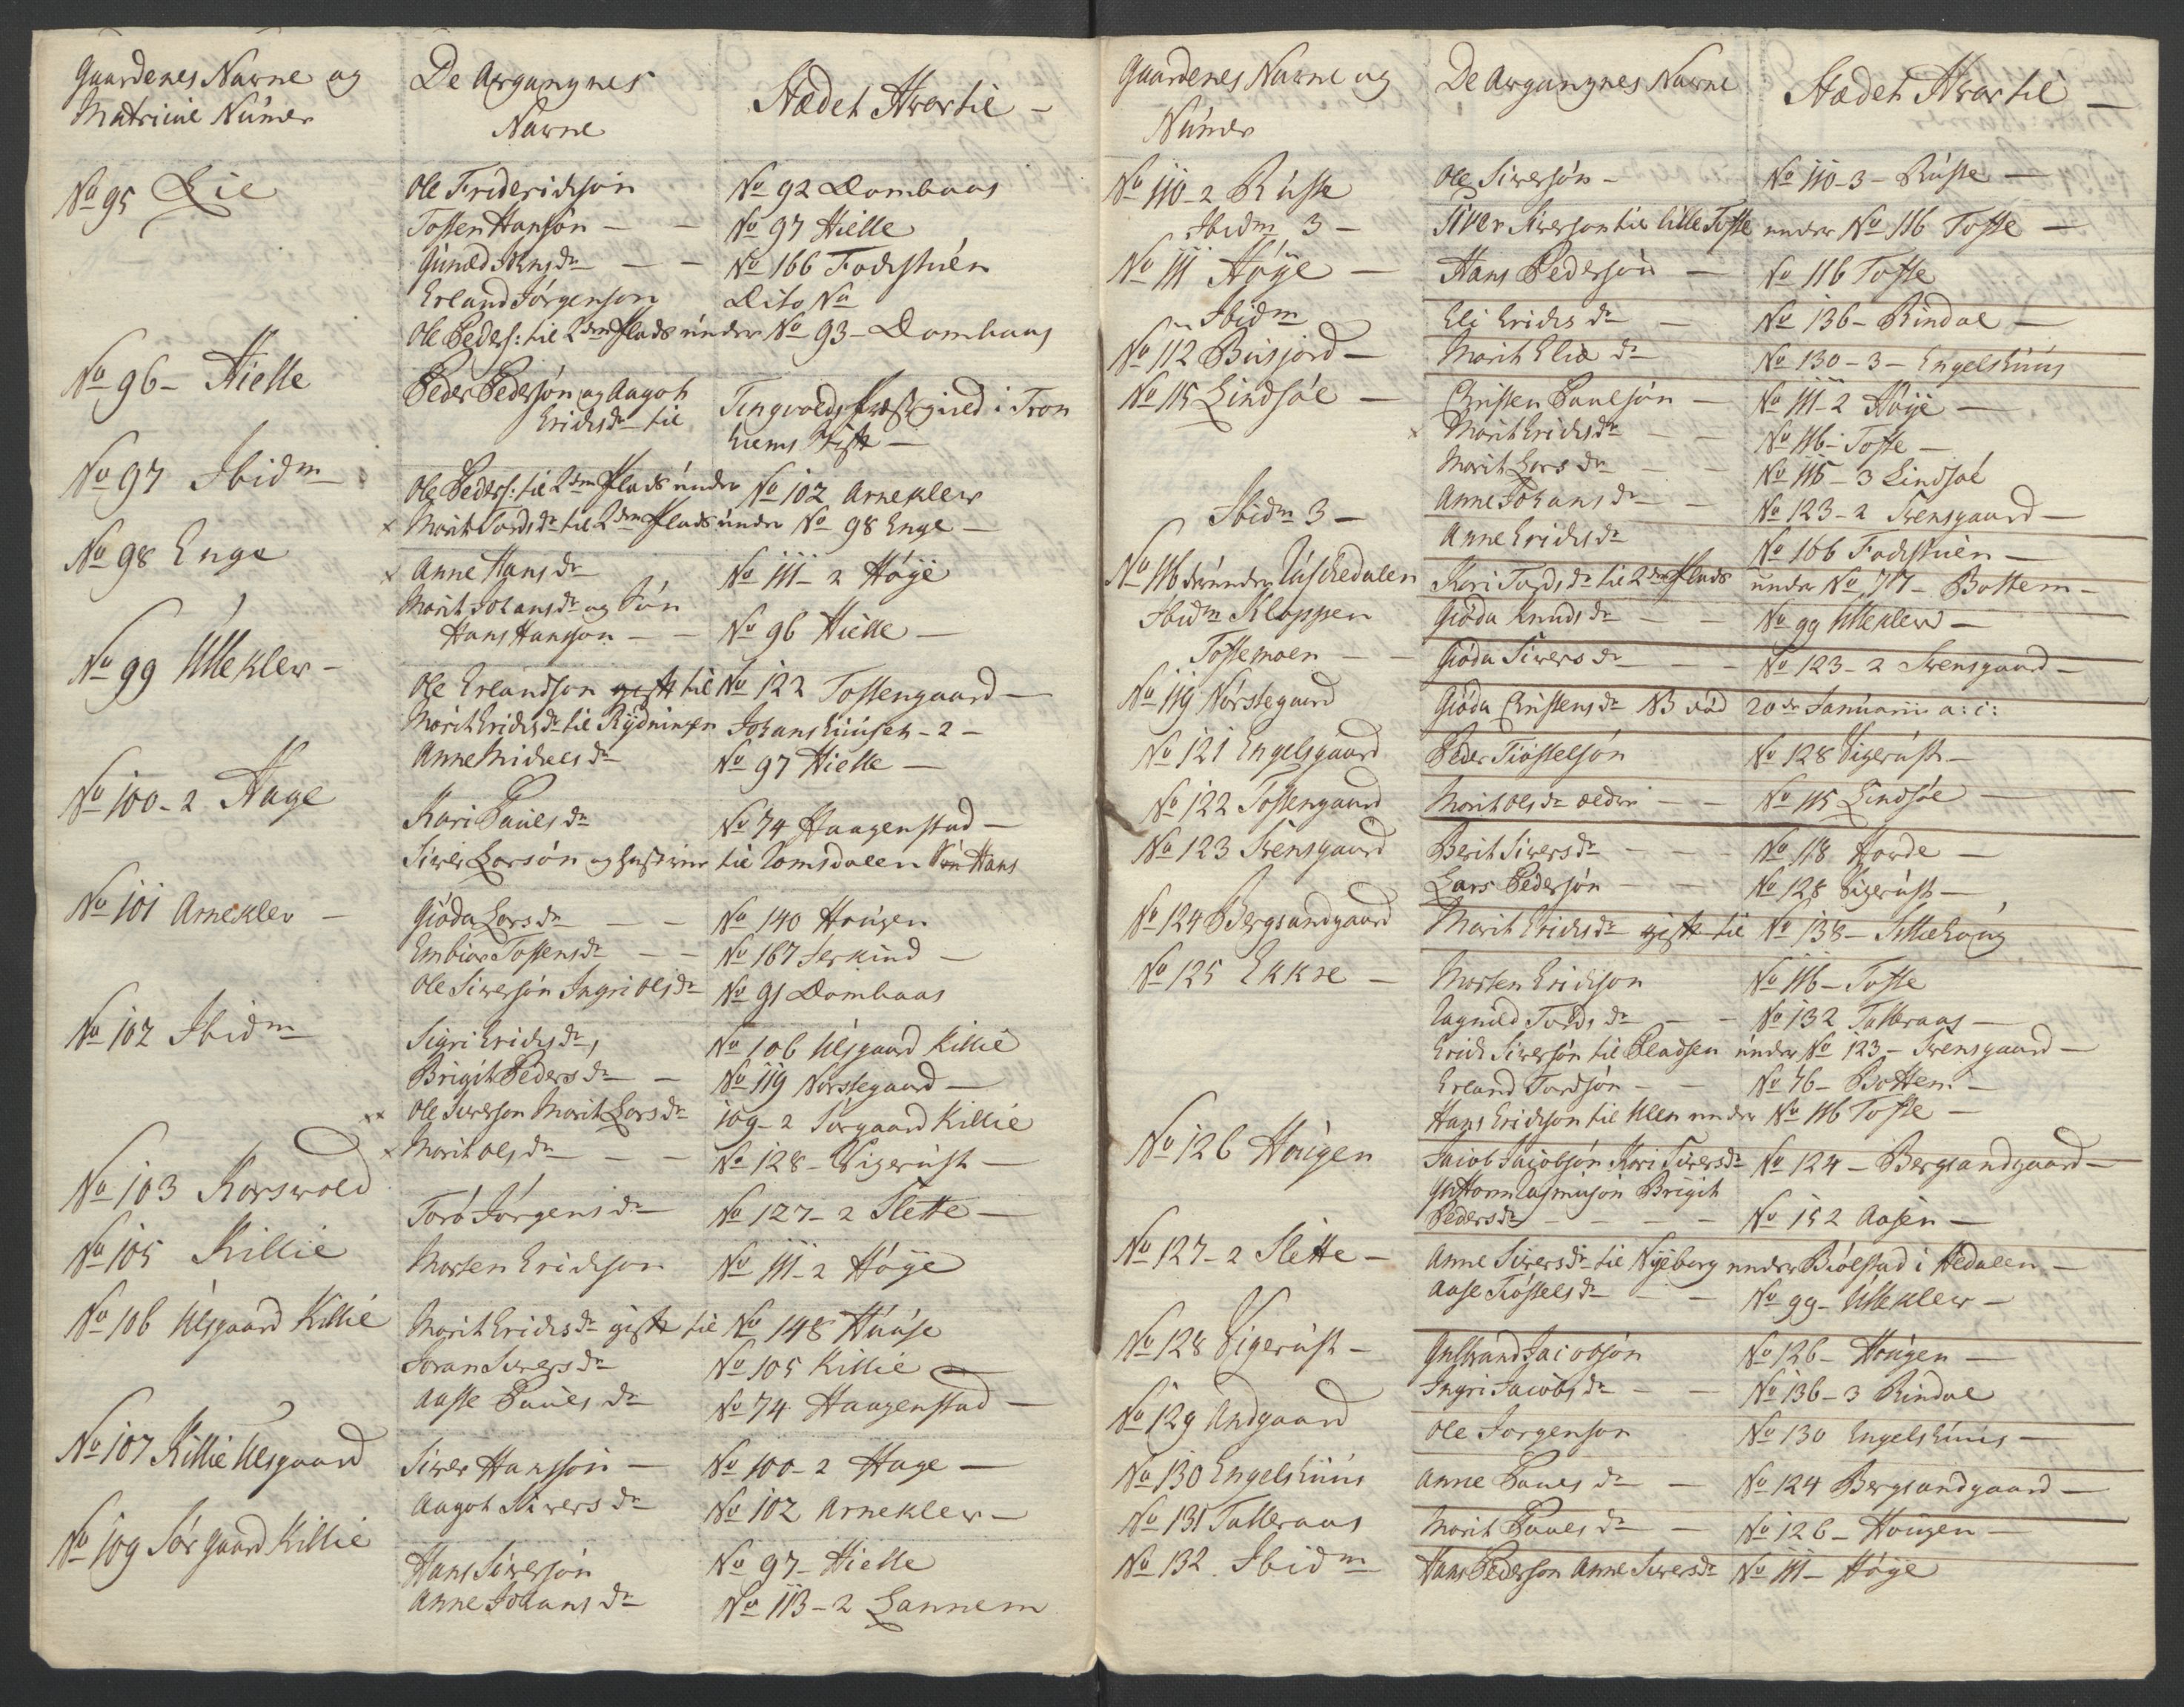 Gaardenes Navne og
Matricul Númer
De Afgangnes
Navne
Stædet Hvortil –
No 95 Lie
Ole Friderichsón
No 92 Dombaas
Tosten Hansón – –
No 97 Hielle
Gunild Johnsdr – –
No 166 Fochstuén
Erland Jórgenson
Dito No
Ole Peders: til 2den Plads únder No 93 – Dombaas
No 96 – Hielle
Peder Pedersón og Aagoh
Erichsdr til
Tingvolds Præstegield i Tron
hiems Stift –
No 97 Ibidm
Ole Peders: til 2den Plads únder No 102 Arneklew
x Morit Tordsdr til 2den Plads únder No 98 Enge –
No 98 Enge
x Anne Hansdr
No 111 – 2 Hóÿe
Morit Johansdr og Són
Hans Hansson – –
No 96 Hielle –
No 99 Ulleklew –
Ole Erlandson gift til No 122 Tostengaard –
Morit Erichsdr til Rÿdningen Johanshúuset – 2 –
Anne Michelsdr
No 97 Hielle –
No 100 – 2 Hage
Kari Pauelsdr
No 74 Haagenstad –
Siver Larsón og Hustrue til Romsdalen Són Hans
No 101 Arneklev –
Gióda Larsdr – –
No 140 Hoúgen
Embior Tostensdr – –
No 167 Jerkind –
Ole Siversón Ingri Olsdr
No 91 Dombaas
No 102 Ibidm
Sigri Erichsdr,
No 106 Ulsgaard Killie
Brigit Pedersdr –
No 119 Nórstegaard –
xx Ole Siverson Morit Larsdr
109 – 2 Sórgaard Killie
x Morit Olsdr – –
No 128 – Vigerúst –
No 103 Korswold
Toró Jórgensdr –
No 127 – 2 Slette –
No 105 Killie
Morten Erichson
No 111 – 2 Hóÿe
No 106 Ulsgaard Killie
Morit Erichsdr gift til No 148 Húúse
Joran Siversdr
No 105 Killie –
Aasse Pauelsdr
No 74 Haagenstad –
No 107 Killie Ulsgaard
Siver Hansson –
No 100 – 2 Hage –
Aagot Siversdr
No 102 Arneklev –
No 109 Sór gaard Killie
Hans Siversón
No 97 – Hielle
Anne Johansdr
No 113 – 2 Lannem
Gaardenes Navne og
Númer
De Avgangnes Navne
Stædet Hvortil –
No 110 – 2 Rúste
Ole Siversón –
No 110 – 3 – Rúste –
Ibidm 3 –
Siver Siverson til lille Tofte under No 116 Tofte –
No 111 Hóÿe –
Hans Pedersón –
No 116 Tofte
Ibidm
Eli Erichsdr –
No 136 – Rindal –
No 112 Búsjord –
Morit Eliædr –
No 130 – 3 – Engelshúus
No 115 Lindsóe –
Christen Pauelsón –
No 111 – 2 Hóÿe –
x Morit Erichsdr – –
No 116 – Tofte –
Morit Larsdr – –
No 115 – 3 Lindsóe
Ibidm 3 –
Anne Johansdr –
No 123 – 2 Svensgaard –
Anne Erichsdr
No 166 Fochstuén –
Kari Tordsdr til 2den Plads under No 77 – Bottem –
Ibidm Kloppen
Gióda Knudsdr – –
No 99 Ulleklew –
Toftemoen –
Gióda Siversdr – –
No 123 – 2 Svensgaard –
No 119 Nórstegaard
Gióda Christensdr NB dód 20de Januarii a: c:
No 121 Engelsgaard
Peder Tióstelsón
No 128 Vigerúst –
No 122 Tostengaard
Morit Olsdr ælder – –
No 115 Lindsóe –
No 123 Svensgaard
Berit Siversdr – –
No 118 Horde –
Lars Pedersón – –
No 128 Vigerúst –
No 124 Bergsandgaard
Morit Erichsdr gift til No 138 –
No 125 Ekkre –
Morten Erichson
No 116 – Tofte
Ragnild Tordsdr – –
No 132 Talleraas –
Erich Siversón til Pladsen únder No 123 – Svensgaard –
Erland Tordsón – –
No 76 – Bottem –
Hans Erichson til Ulen under No 116 Tofte –
No 126 Hoúgen
Jacob Jacobsón Kari Siversdr No 124 – Bergsandgaard –
Guttorm Rasmusón Brigit
Pedersdr – – – –
No 152 Aasen –
No 127 – 2 Slette –
Anne Siversdr til Nÿeborg under Biólstad i Hedalen –
Aase Tióstelsdr – –
No 99 – Ulleklew –
No 128 Vigerúst –
Gulbrand Jacobsón
No 126 – Hoúgen –
Ingri Jacobsdr – –
No 136 – 3 Rindal
No 129 Andgaard
Ole Jorgenson
No 130 Engelshúus –
No 130 Engelshúus
Anne Pauelsdr –
No 124 Bergsandgaard –
No 131 Talleraas
Morit Pauelsdr –
No 126 – Hoúgen –
No 132 Ibidm
Hans Pederson Anne Siversdr No 111 – Hóÿe